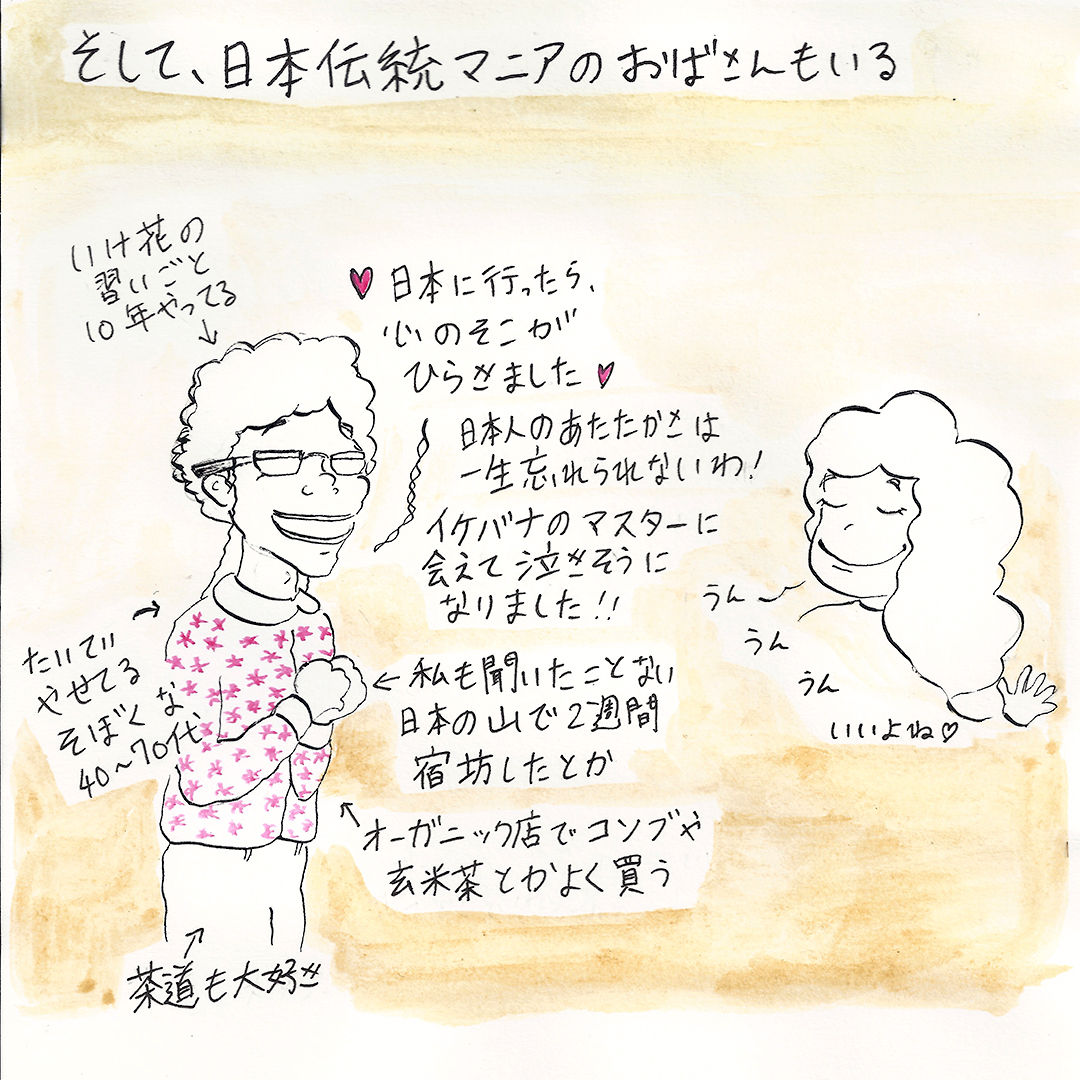 そして、日本伝統マニアのおばさんもいる
いけ花の
習いごと
10年やってる
日本に行ったら、
心のそこが
ひらきました
日本人のあたたかさは
一生忘れられないわ!
イケバナのマスターに
会えて泣きそうに
なりました!!
うん
うん
うん
いいよね♡
たいてい
やせてる
そぼくな
40〜70代
私も聞いたことない
日本の山で2週間
宿坊したとか
オーガニック店でコンブや
玄米茶とかよく買う
茶道も大好き